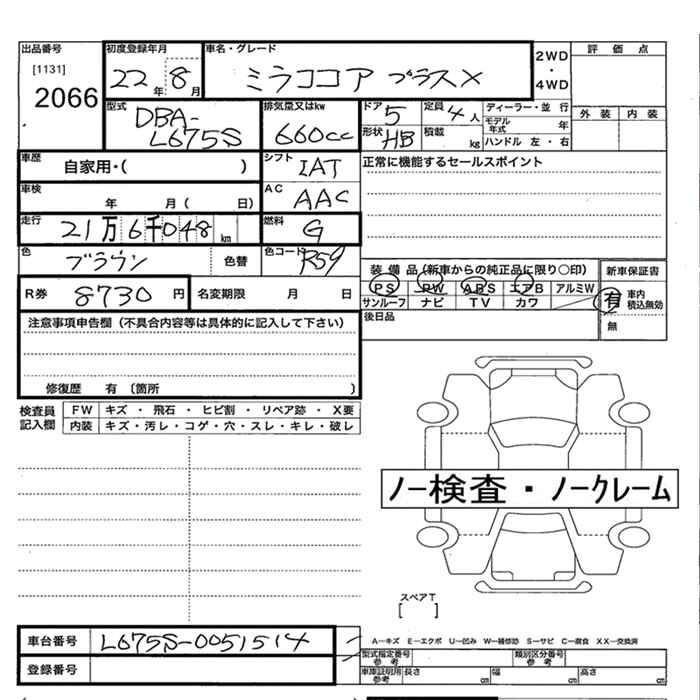 出品番号
[1131]
2066
初度登録年月
22年 8月
車名・グレード
ミラココア プラスX
2WD
・
4WD
評価点
外装 内装
型式
DBA-
L675S
排気量又はkw
660cc
ドア 5
形状 HB
定員 4人
積載 kg
ディーラー・並行
モデル年式 年
ハンドル 左・右
車歴
自家用・( )
シフト
IAT
正常に機能するセールスポイント
車検
年 月( 日)
AC
AAC
走行
21万6千048km
燃料
G
色
ブラウン
色替
色コード
R59
装備品(新車からの純正品に限り〇印)
新車保証書
PS PW ABS エアB アルミW
サンルーフ ナビ TV カワ
有
車内
積込無効
無
R券 8730円
名変期限 月 日
後日品
注意事項申告欄(不具合内容等は具体的に記入して下さい)
修復歴 有 〔箇所 )
検査員
記入欄
FW キズ・飛石・ヒビ割・リペア跡・X要
内装 キズ・汚レ・コゲ・穴・スレ・キレ・破レ
ノー検査・ノークレーム
スペアT
[ ]
車台番号
L675S-0051514
A―キズ E―エクボ U―凹み W―補修跡 S―サビ C―腐食 XX―交換済
型式指定番号
参考
類別区分番号
参考
登録番号
車庫証明用
参考
長さ cm 幅 cm 高さ cm